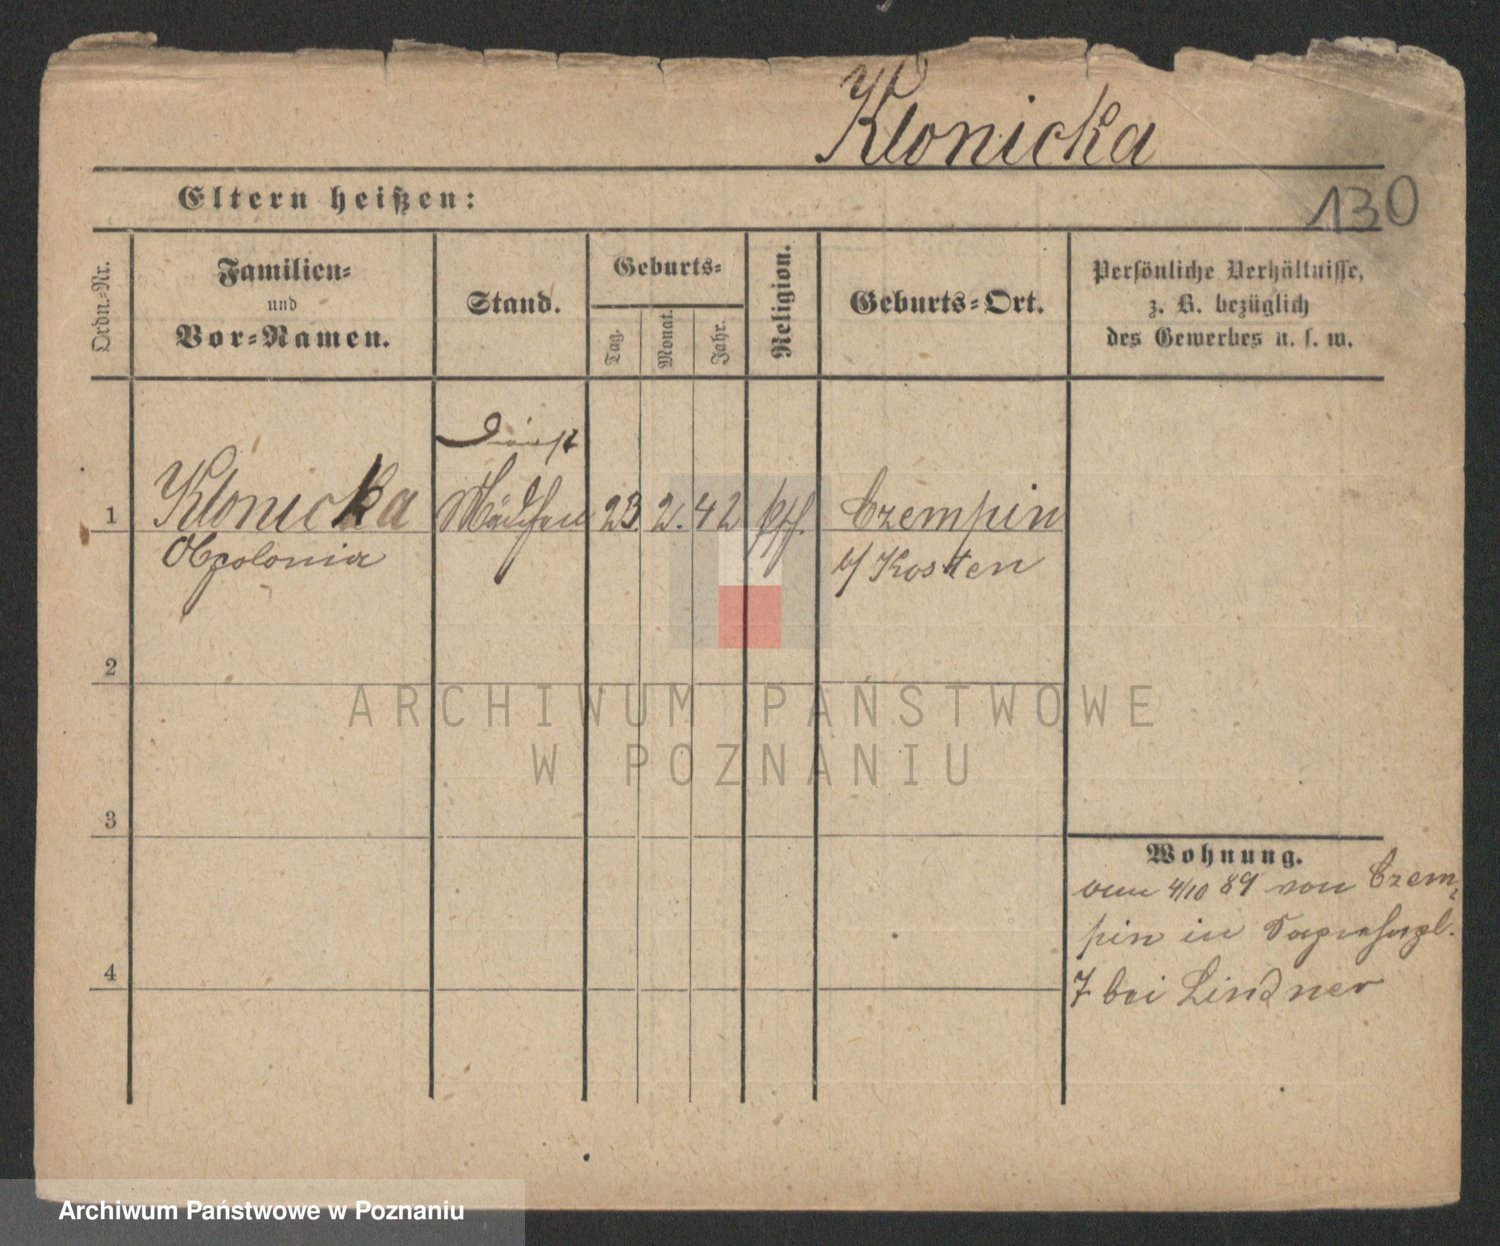 Klonicka
130
Eltern heißen:
Ordn.-Nr.
Familien-
und
Vor-Namen.
Stand.
Geburts-
Tag.
Monat.
Jahr.
Religion.
Geburts-Ort.
Persönliche Verhältnisse,
z. B. bezüglich
des Gewerbes u. s. w.
Dienst
1 Klonicka Mädchen 23. 2. 42 Czempin
Apolonia b/ Kosten
2
3
4
Wohnung.
vom 4/10 89 von Czem-
pin in
7 bei Lindner
ARCHIWUM PAŃSTWOWE
W POZNANIU
Archiwum Państwowe w Poznaniu